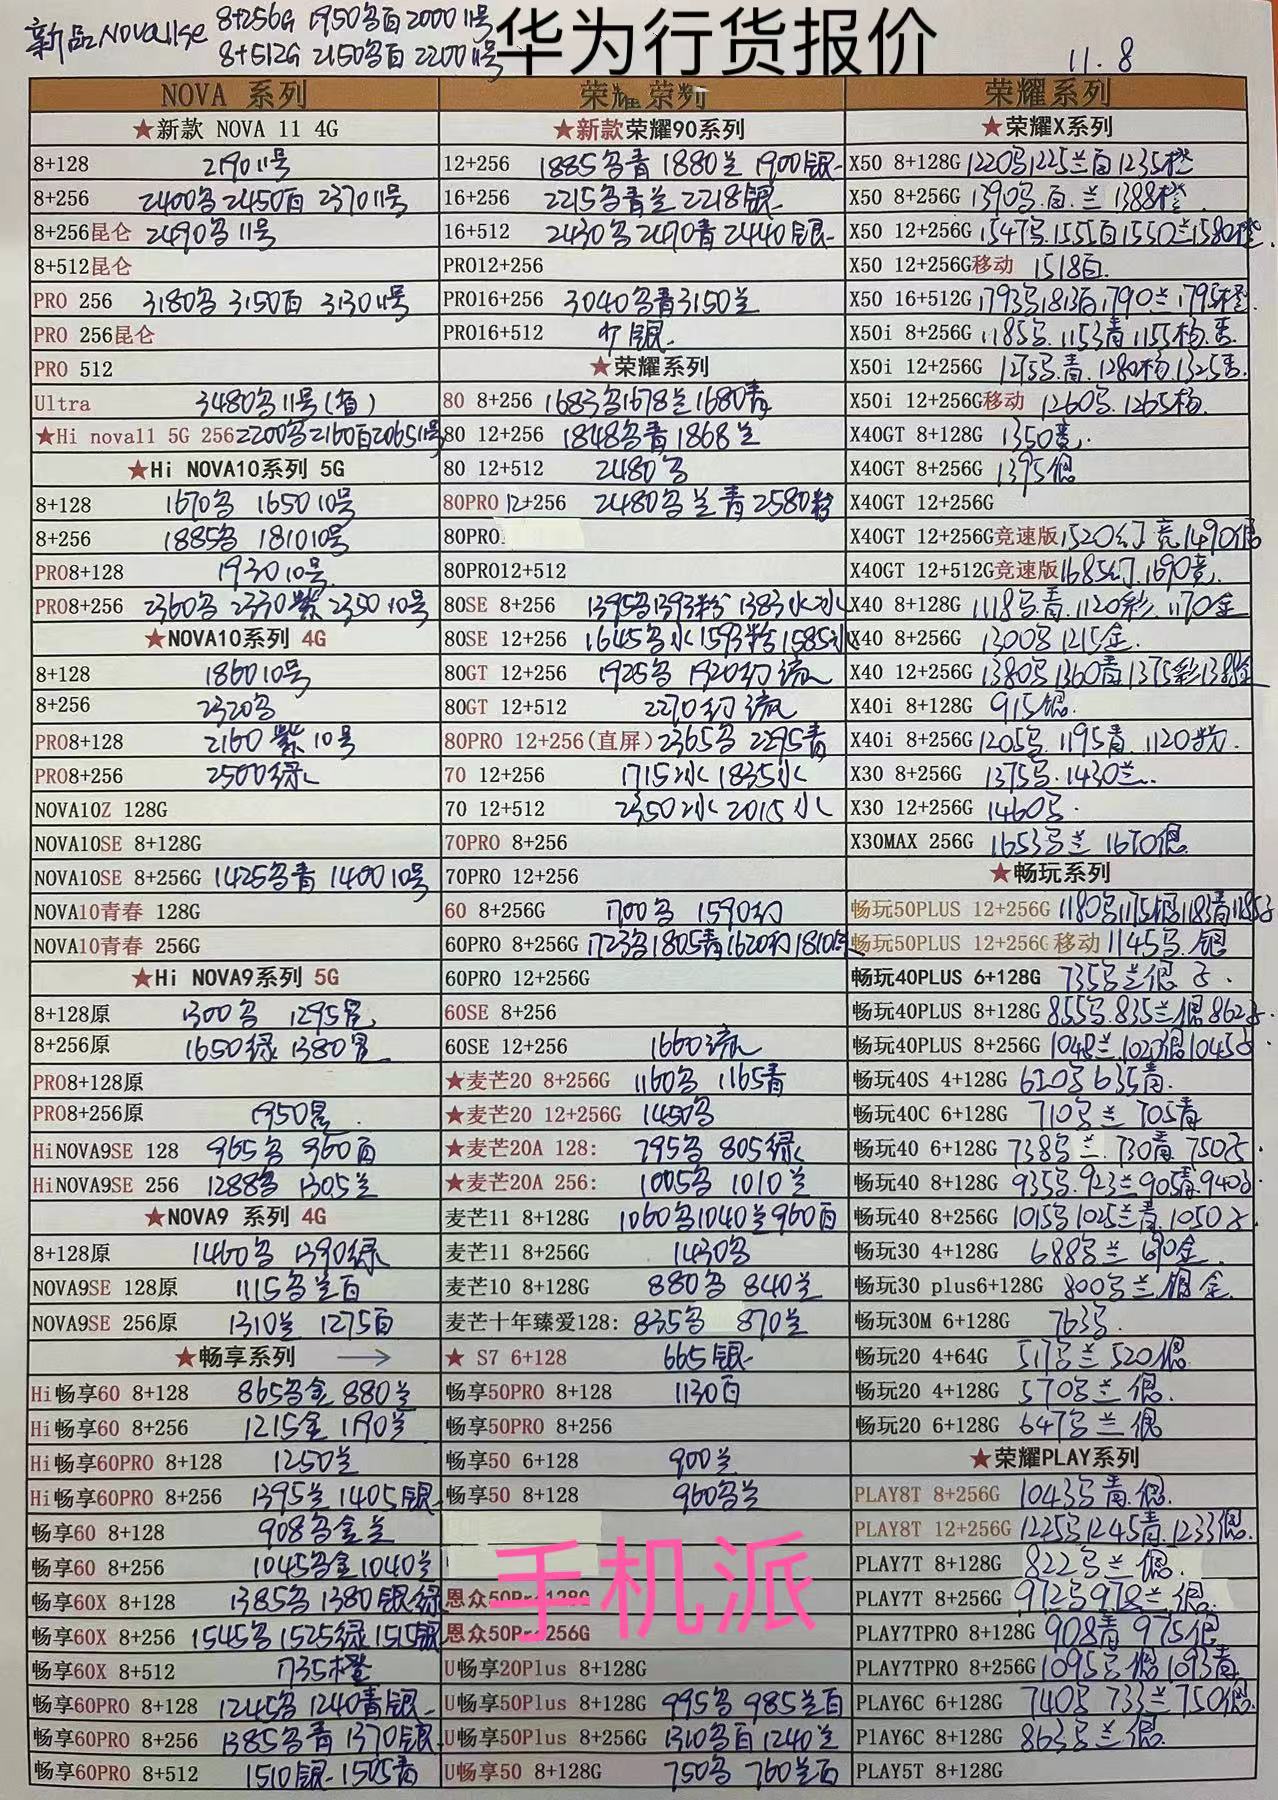 华为行货报价
新品NOVA11se 8+256G 1950名百 2000 11号
8+512G 2150名百 2200 11号
11.8
NOVA 系列
★新款 NOVA 11 4G
8+128 2190 11号
8+256 2400名 2450百 2370 11号
8+256昆仑 2490名 11号
8+512昆仑
PRO 256 3180名 3150百 3130 11号
PRO 256昆仑
PRO 512
Ultra 3480名 11号
★Hi nova11 5G 256 2200名 2160百 2065 11号
★Hi NOVA10系列 5G
8+128 1670名 1650 10号
8+256 1885名 1810 10号
PRO8+128 1930 10号
PRO8+256 2360名 2330紫 2350 10号
★NOVA10系列 4G
8+128 1860 10号
8+256 2320名
PRO8+128 2160 紫 10号
PRO8+256 2500绿
NOVA10Z 128G
NOVA10SE 8+128G
NOVA10SE 8+256G 1425名青 1400 10号
NOVA10青春 128G
NOVA10青春 256G
★Hi NOVA9系列 5G
8+128原 1300名 1295
8+256原 1650绿 1380
PRO8+128原
PRO8+256原 1950
HiNOVA9SE 128 965名 960百
HiNOVA9SE 256 1288名 1305兰
★NOVA9 系列 4G
8+128原 1460名 1390绿
NOVA9SE 128原 1115名兰百
NOVA9SE 256原 1310兰 1275百
★畅享系列 →
Hi畅享60 8+128 865名金 880兰
Hi畅享60 8+256 1215金 1190兰
Hi畅享60PRO 8+128 1250兰
Hi畅享60PRO 8+256 1395兰 1405银
畅享60 8+128 908名金兰
畅享60 8+256 1045名金 1040兰
畅享60X 8+128 1385名 1380银绿
畅享60X 8+256 1545名 1525绿 1515银
畅享60X 8+512 1735橙
畅享60PRO 8+128 1245名 1240青银
畅享60PRO 8+256 1385名青 1370银
畅享60PRO 8+512 1510银 1505青
荣耀系列
★新款荣耀90系列
12+256 1885名青 1880兰 1900银
16+256 2215名青兰 2218银
16+512 2430名 2470青 2440银
PRO12+256
PRO16+256 3040名青 3150兰
PRO16+512 银
★荣耀系列
80 8+256 1683名 1678兰 1680青
80 12+256 1848名青 1868兰
80 12+512 2480名
80PRO 12+256 2480名兰青 2580粉
80PRO
80PRO12+512
80SE 8+256 1395名 1393粉 1383水冰
80SE 12+256 1645名水 1593粉 1585冰
80GT 12+256 1925名 1920幻流
80GT 12+512 2270幻流
80PRO 12+256(直屏) 2365名 2295青
70 12+256 1715冰 1835水
70 12+512 2350冰 2015水
70PRO 8+256
70PRO 12+256
60 8+256G 1700名 1590幻
60PRO 8+256G 1723名 1805青 1620幻 1810
60PRO 12+256G
60SE 8+256
60SE 12+256 1660流
★麦芒20 8+256G 1160名 1165青
★麦芒20 12+256G 1450名
★麦芒20A 128: 795名 805绿
★麦芒20A 256: 1005名 1010兰
麦芒11 8+128G 1060名 1040兰 960百
麦芒11 8+256G 1430名
麦芒10 8+128G 880名 840兰
麦芒十年臻爱128: 835名 870兰
★ S7 6+128 665银
畅享50PRO 8+128 1130百
畅享50PRO 8+256
畅享50 6+128 900兰
畅享50 8+128 960名兰
手机派
恩众50Pr 128G
恩众50Pr 256G
U畅享20Plus 8+128G
U畅享50Plus 8+128G 995名 985兰百
U畅享50Plus 8+256G 1310名百 1240兰
U畅享50 8+128G 750名 760兰百
荣耀系列
★荣耀X系列
X50 8+128G 1220名 1225兰百 1235橙
X50 8+256G 1390名.百.兰 1388橙
X50 12+256G 1547名.1555百 1550兰 1580橙
X50 12+256G移动 1518百.
X50 16+512G 1793名 1813百 1790兰 1795橙
X50i 8+256G 1185名.1153青 1155
X50i 12+256G 1275名.青.1280 1325
X50i 12+256G移动 1260名.1265
X40GT 8+128G 1350竞.
X40GT 8+256G 1395银
X40GT 12+256G
X40GT 12+256G竞速版 1520幻 竞 1490银
X40GT 12+512G竞速版 1685幻.1690竞.
X40 8+128G 1118名青.1120彩.1170金
X40 8+256G 1300名 1215金.
X40 12+256G 1380名 1360青 1375彩 1388金
X40i 8+128G 915银.
X40i 8+256G 1205名.1195青.1120粉.
X30 8+256G 1375名.1430兰.
X30 12+256G 1460名.
X30MAX 256G 1653名兰 1670银.
★畅玩系列
畅玩50PLUS 12+256G 1180名 1175银 1183青 1185
畅玩50PLUS 12+256G 移动 1145名.银
畅玩40PLUS 6+128G 735名兰银
畅玩40PLUS 8+128G 855名.835兰银 862
畅玩40PLUS 8+256G 1048兰 1020银 1045
畅玩40S 4+128G 620名 635青.
畅玩40C 6+128G 710名兰 705青
畅玩40 6+128G 738名兰.730青 750
畅玩40 8+128G 935名.923兰 905青.940
畅玩40 8+256G 1015名 1025兰青.1050
畅玩30 4+128G 688名兰 690金
畅玩30 plus6+128G 800名兰银金.
畅玩30M 6+128G 763名.
畅玩20 4+64G 517名兰 520银
畅玩20 4+128G 570名兰银.
畅玩20 6+128G 647名兰银
★荣耀PLAY系列
PLAY8T 8+256G 1043名青.银.
PLAY8T 12+256G 1225名 1245青.1233银.
PLAY7T 8+128G 822名兰银
PLAY7T 8+256G 972名 978兰银.
PLAY7TPRO 8+128G 908青 975银
PLAY7TPRO 8+256G 1095名银 1093青
PLAY6C 6+128G 740名 733兰 750银.
PlAY6C 8+128G 863名兰银.
PLAY5T 8+128G